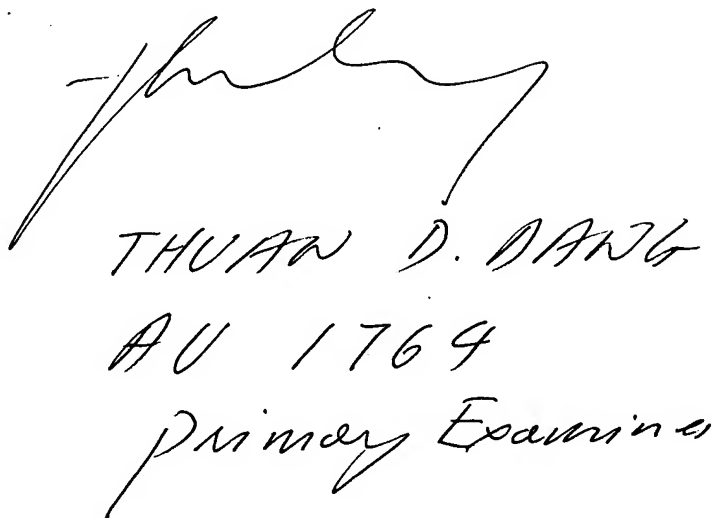 THUAN D. DANG
AU 1764
Primary Examiner